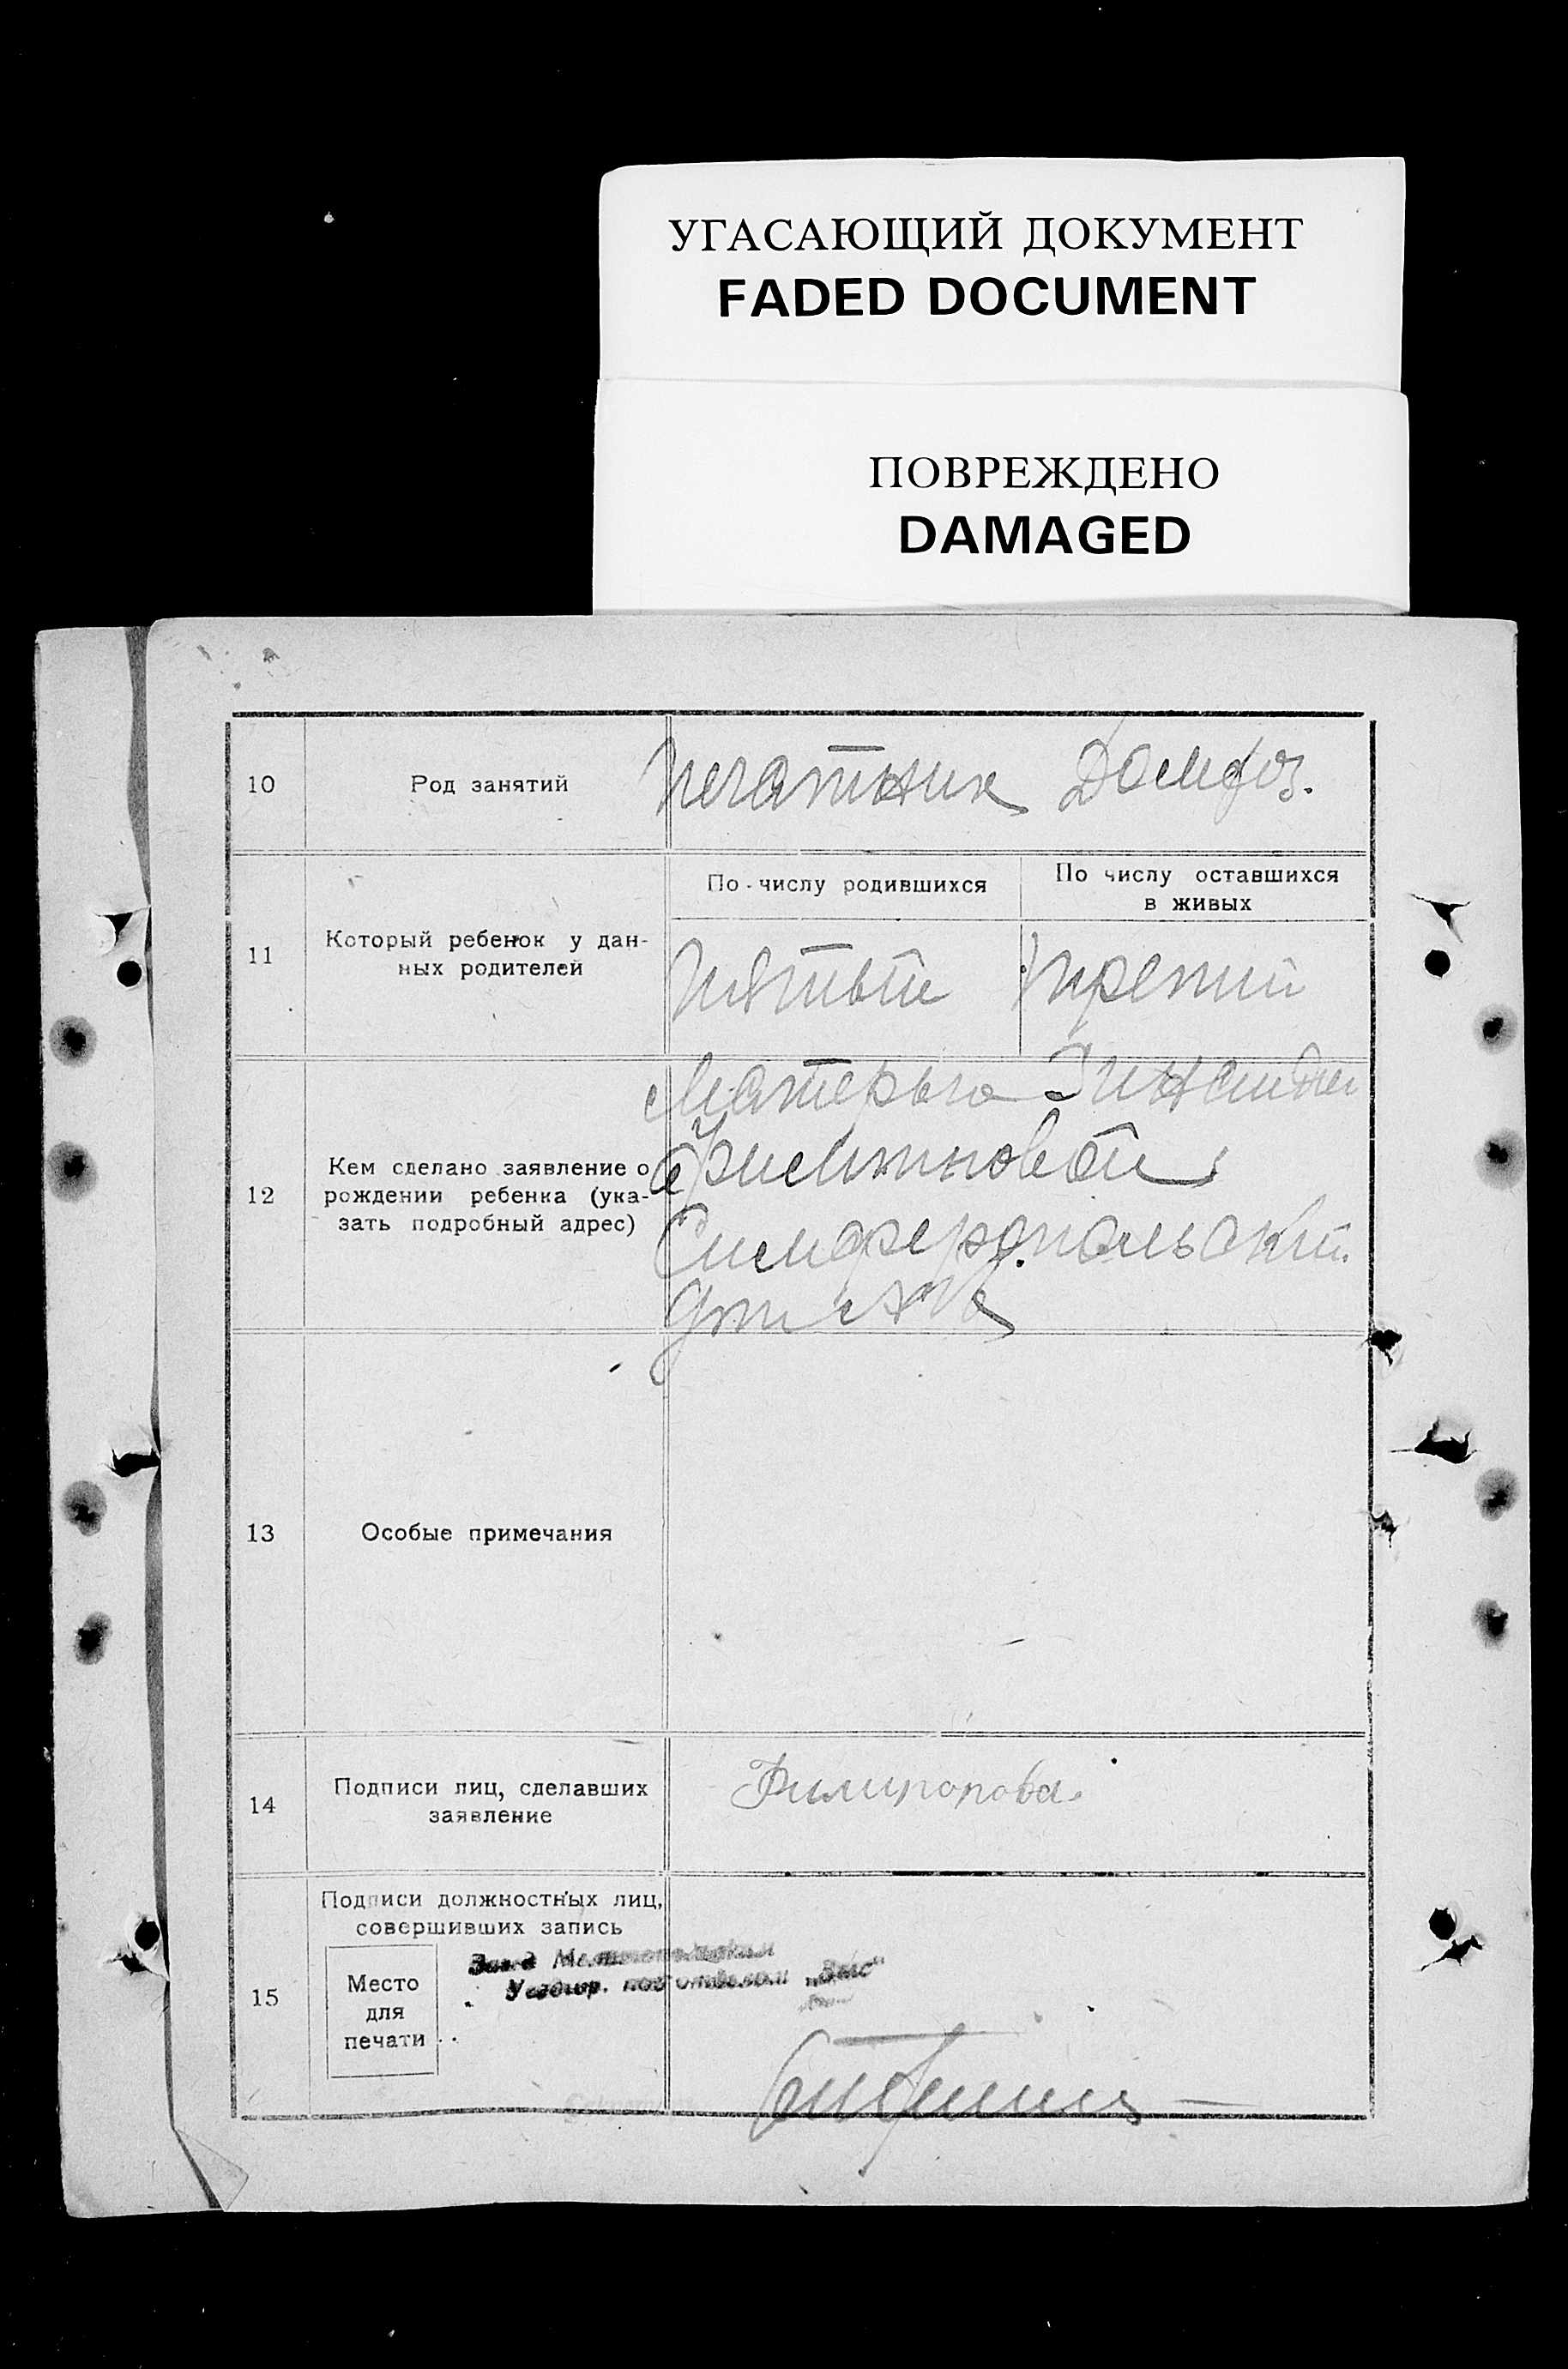 УГАСАЮЩИЙ ДОКУМЕНТ
FADED DOCUMENT
ПОВРЕЖДЕНО
DAMAGED
10 Род занятий печатник Домхоз.
11 Который ребенок у дан-
ных родителей
По числу родившихся
По числу оставшихся
в живых
пятый третий
12 Кем сделано заявление о
рождении ребенка (ука-
зать подробный адрес)
Матерью
Симферопольский
13 Особые примечания
14 Подписи лиц, сделавших
заявление
15 Подписи должностных лиц,
совершивших запись
Место
для
печати
Завед
"Загс"